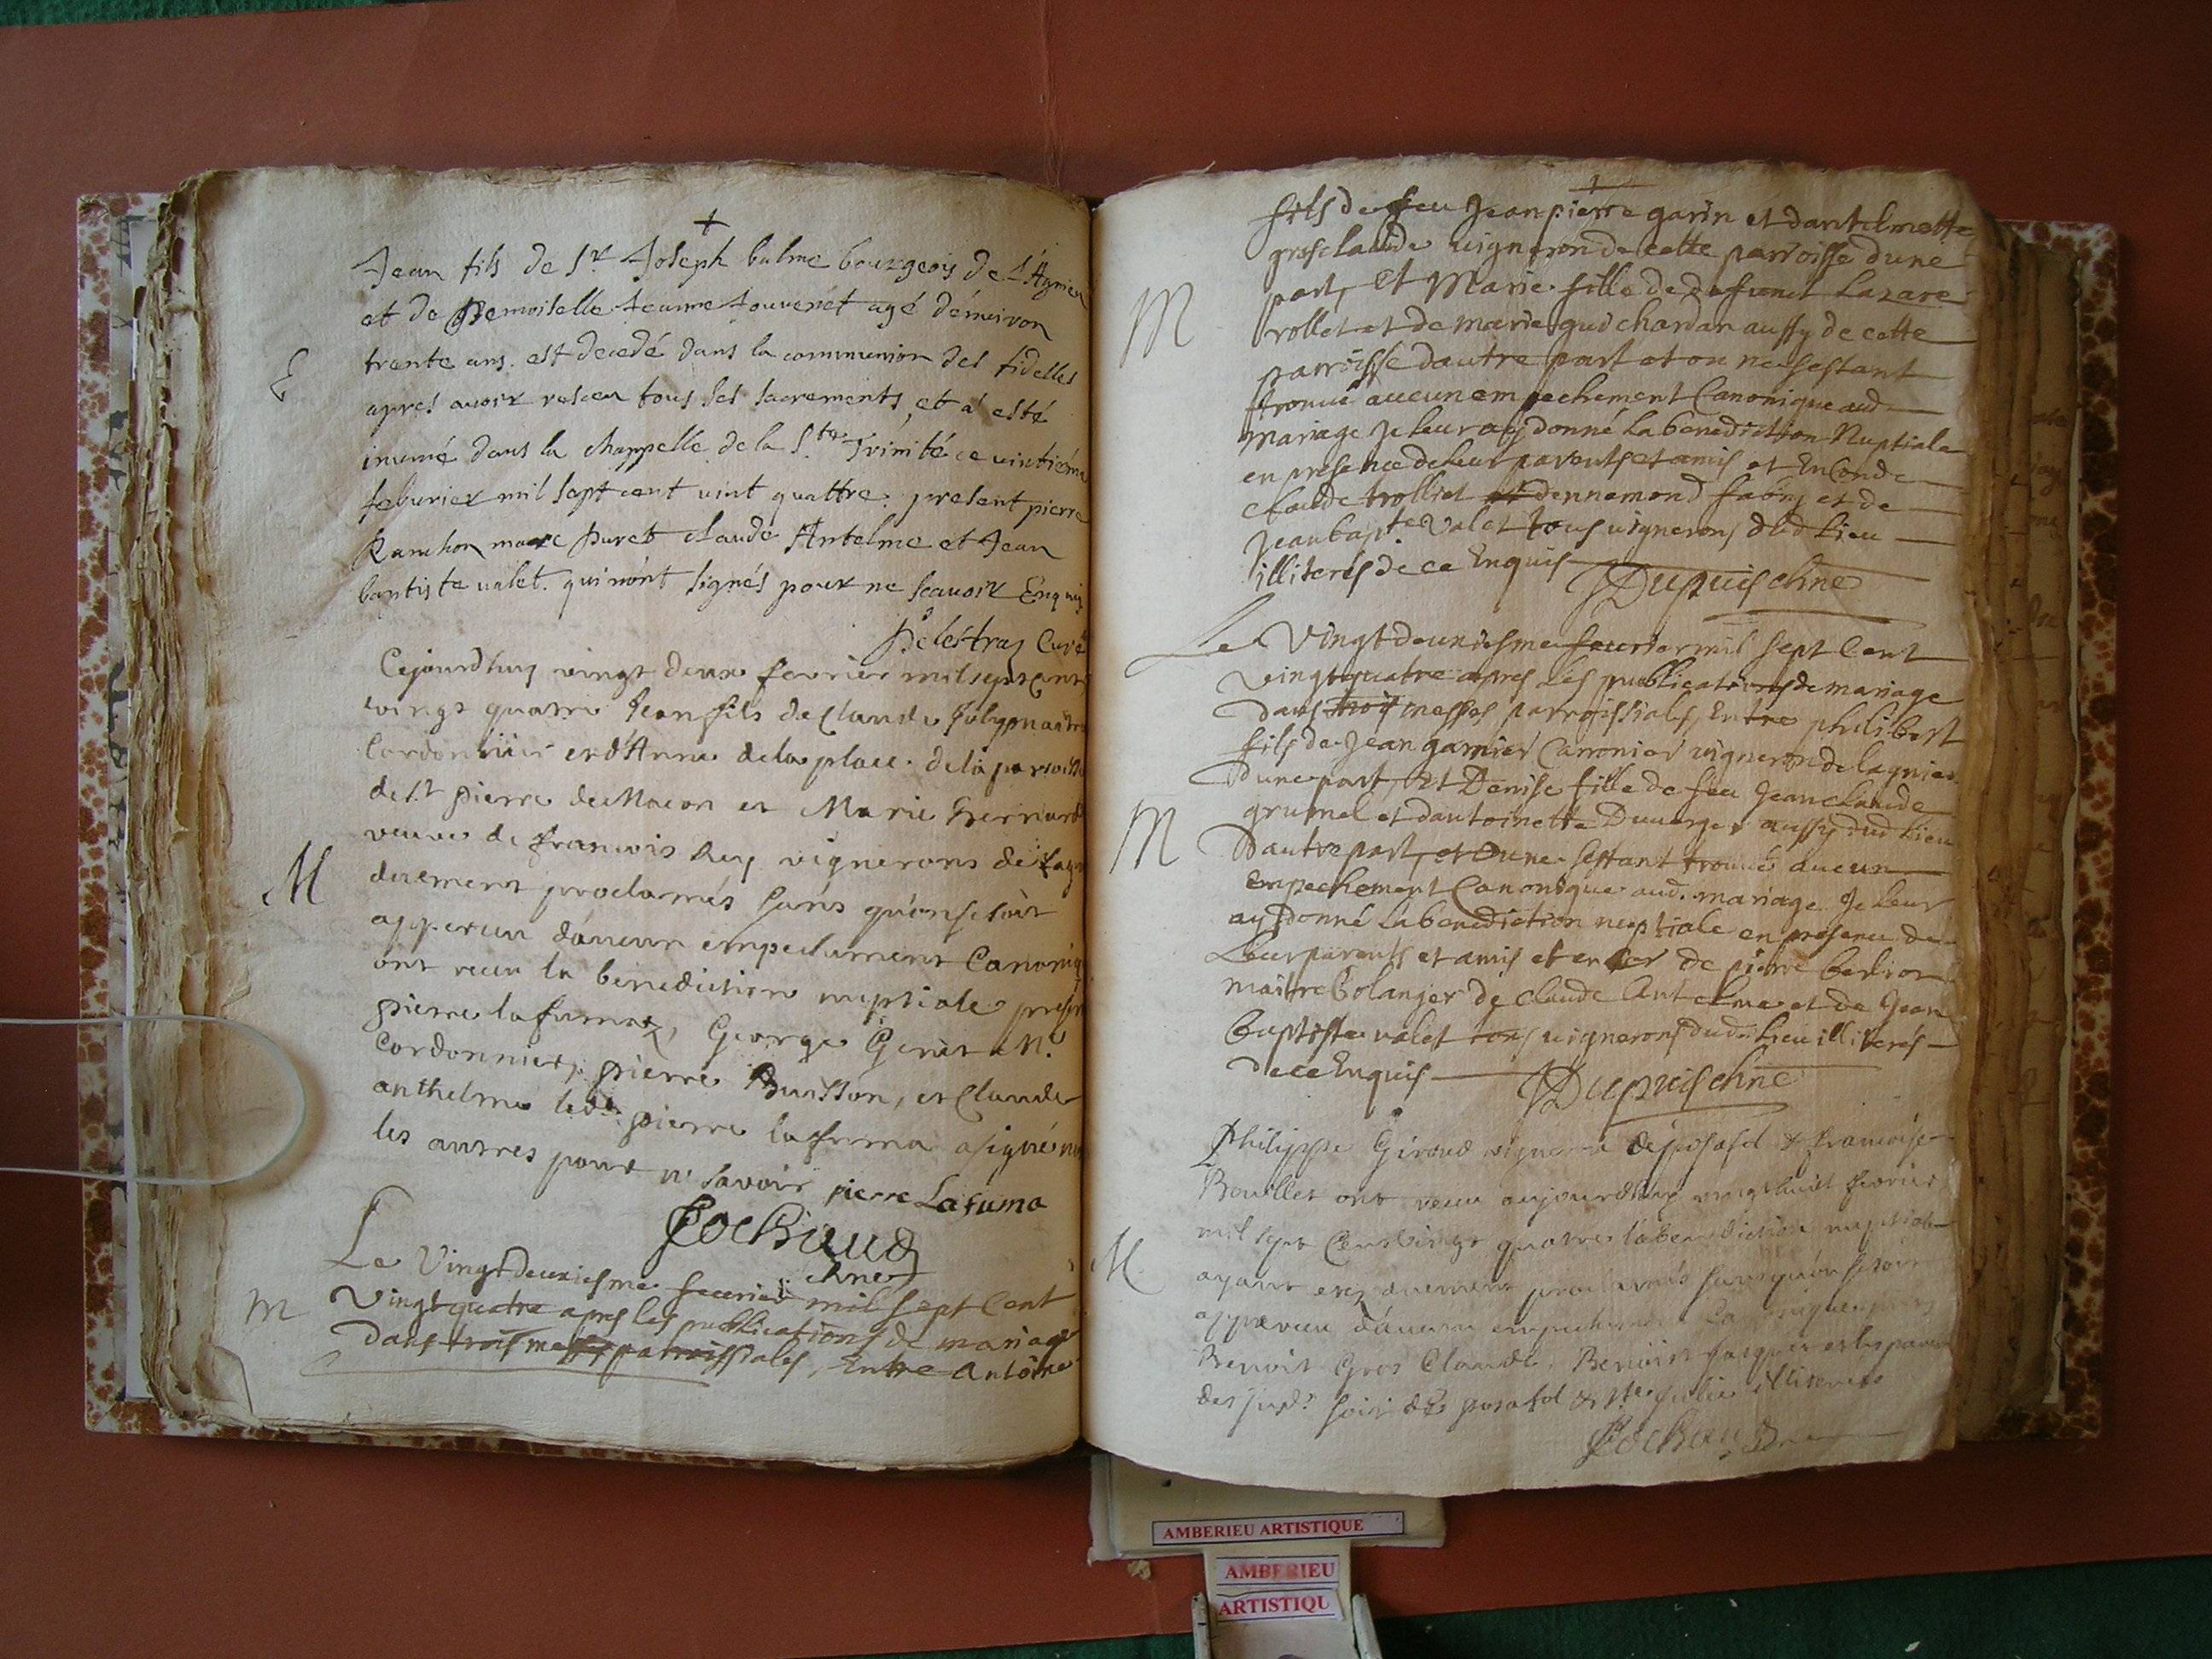 +
Jean fils de Sr Joseph balme bourgeois de
et de Demoiselle Jeanne Jouvenet agé d'environ
E
trente ans. est decedé dans la communion des fidelles
apres avoir receu tous les sacrements, et a esté
inumé dans la chappelle de la Ste Trinité ce vintiéme
feburier mil sept cent vint quattre. present pierre
Ranchon marc Puret claude Antelme et Jean
baptiste valet. qui n'ont signés pour ne scavoir Enquis
Delestraz Curé
Cejourdhuy vingt deux fevrier mil sept cent
vingt quatre Jean fils de Claude
Cordonnier et d'Anne de la place. de la paroisse
de St pierre de Macon et Marie Bernard
veuve de francois Rey vignerons de
M
duement proclamés sans qu'on se soit
apperceu d'aucun empechement Canoniq
ont receu la benediction nuptiale
pierre lafuma, George M.
Cordonnier, pierre Buisson, et Claude
anthelme led. pierre lafuma a signé non
les autres pour ne savoir pierre Lafuma
Cochaud
chne
Le Vingtdeuxiesme feuvrier mil sept Cent
M
Vingtquatre apres les publications de mariage
dans trois messes parroissiales, Entre Antoine
+
fils de feu Jean pierre garin et dantelmette
grosclaude vigneron de cette parroisse dune
M
part, Et Marie fille de defunct Lazare
rollet et de marie guichardan aussy de cette
parroisse dautre part et on ne sestant
trouvé aucun empechement Canonique aud
mariage Je leur ay donné La benediction Nuptiale
en presence de leur parents et amis et
claude trolliet dennemond fabry et de
Jean bapte valet tous vignerons dud Lieu
illiterés de ce Enquis
Dupuis chne
Le Vingtdeuxiesme feuvrier mil sept Cent
Vingtquatre apres Les publications de mariage
dans trois messes parroissiales, Entre philibert
fils de Jean garnier vigneron de lagnieu
dune part, Et Denise fille de feu Jean claude
M
grumel et dantoinette Duverger aussy dud Lieu
Dautre part, et sestant trouvé aucun
Empechement Canonique aud. mariage Je Leur
ay donné La benediction nuptiale en presence de
Leur parents et amis et en de pierre
maitre Bolanjer de claude Antelme et de Jean
baptiste valet tous vignerons dud. Lieu illiterés
de ce Enquis
Dupuis chne
Philippe Giroud de posafol & francoise
Bouillet ont receu aujourdhuy vingthuit fevrier
mil sept Cent vingt quatre la benediction nuptiale
M
ayant eté duement proclamés sans qu'on se soit
apperceu d'aucun
Benoit Gros Claude, Benoist et les parens
des susd. soit de posafol & Ste Julie illiterés
Cochaud
AMBERIEU ARTISTIQUE
AMBERIEU
ARTISTIQU